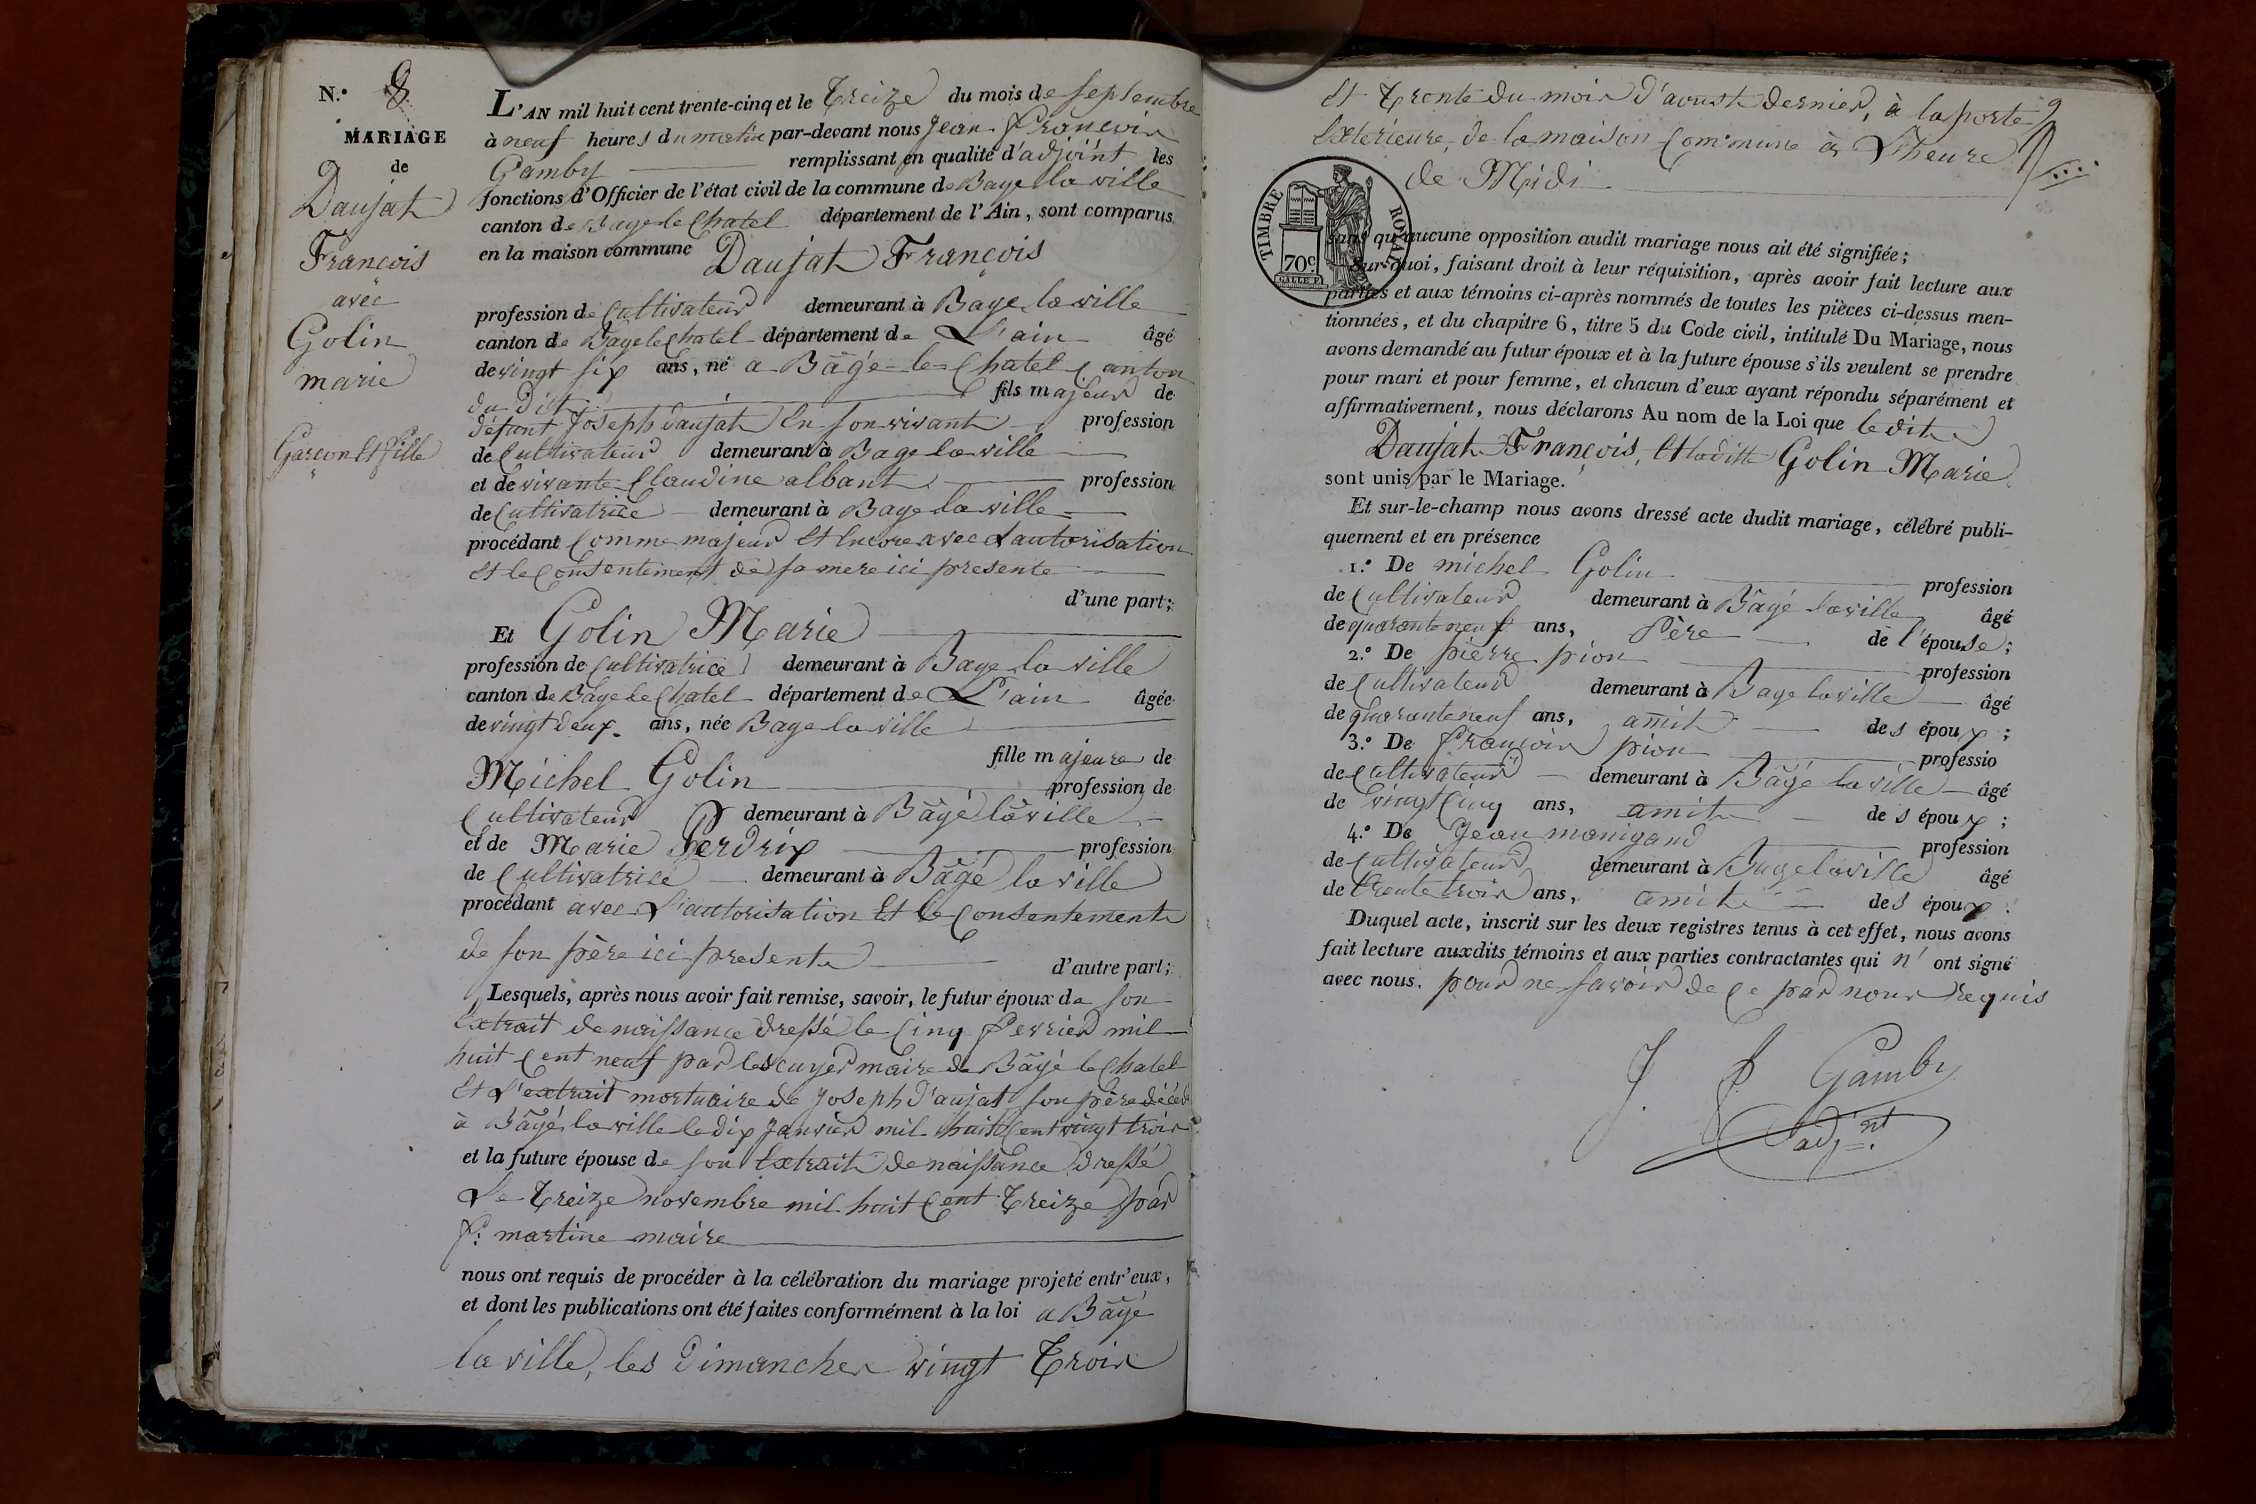 N.o 8
MARIAGE
de
Daujat
François
avec
Golin
marie
Garçon Et fille
L'AN mil huit cent trente-cinq et le Treize du mois de septembre
à neuf heures du matin par-devant nous Jean François
Gamby remplissant en qualité d'adjoint les
fonctions d'Officier de l'état civil de la commune de Bage la ville
canton de Bage le Chatel département de l'Ain, sont comparus
en la maison commune Daujat François
profession de Cultivateur demeurant à Bage la ville
canton de Bage le Chatel département de L'ain âgé
de vingt six ans, né a Bâgé-le-Chatel Canton
du dit fils majeur de
défunt Joseph daujat En son vivant profession
de Cultivateur demeurant à Bage la ville
et de vivante Claudine albant profession
de Cultivatrice demeurant à Bage la ville
procédant Comme majeur Et Encore avec L'autorisation
Et le Consentement de sa mere ici presente
d'une part;
Et Golin Marie
profession de Cultivatrice demeurant à Bage la ville
canton de Bâge le Chatel département de L'ain âgée
de vingt deux ans, née Bage la ville
fille majeure de
Michel Golin profession de
Cultivateur demeurant à Bâgé la ville
et de Marie Perdrix profession
de Cultivatrice demeurant à Bâgé la ville
procédant avec L'autorisation Et le Consentement
de son père ici present
d'autre part;
Lesquels, après nous avoir fait remise, savoir, le futur époux de son
Extrait de naissance dressé le Cinq Fevrier mil
huit Cent neuf par lescuyer maire de Bâgé le Chatel
Et L'extrait mortuaire de Joseph d'aujat son père décédé
à Bâgé la ville le dix Janvier mil huit Cent vingt trois
et la future épouse de son Extrait de naissance dressé
Le Treize novembre mil huit Cent Treize par
f: martine maire
nous ont requis de procéder à la célébration du mariage projeté entr'eux,
et dont les publications ont été faites conformément à la loi a Bâgé
la ville, les dimanches vingt Trois
Et Trente du mois d'aoust dernier, à la porte
Extérieure de la maison Commune à L'heure
de Midi
TIMBRE ROYAL
70c
sans qu'aucune opposition audit mariage nous ait été signifiée;
Sur quoi, faisant droit à leur réquisition, après avoir fait lecture aux
parties et aux témoins ci-après nommés de toutes les pièces ci-dessus men-
tionnées, et du chapitre 6, titre 5 du Code civil, intitulé Du Mariage, nous
avons demandé au futur époux et à la future épouse s'ils veulent se prendre
pour mari et pour femme, et chacun d'eux ayant répondu séparément et
affirmativement, nous déclarons Au nom de la Loi que le dit
Daujat François, Et la ditte Golin Marie
sont unis par le Mariage.
Et sur-le-champ nous avons dressé acte dudit mariage, célébré publi-
quement et en présence
1.o De michel Golin profession
de Cultivateur demeurant à Bâgé la ville âgé
de quarante neuf ans, Père de l'épouse;
2.o De pierre pion profession
de Cultivateur demeurant à Bage la ville âgé
de quarante neuf ans, amit des époux;
3.o De François pion professio
de Cultivateur demeurant à Bâgé la ville âgé
de vingt Cinq ans, amit des époux;
4.o De Jean manigand profession
de Cultivateur demeurant à Bage la ville âgé
de trente trois ans, amit des époux.
Duquel acte, inscrit sur les deux registres tenus à cet effet, nous avons
fait lecture auxdits témoins et aux parties contractantes qui n'ont signé
avec nous. pour ne savoir de Ce par nous requis
J F Gamby
adj.nt